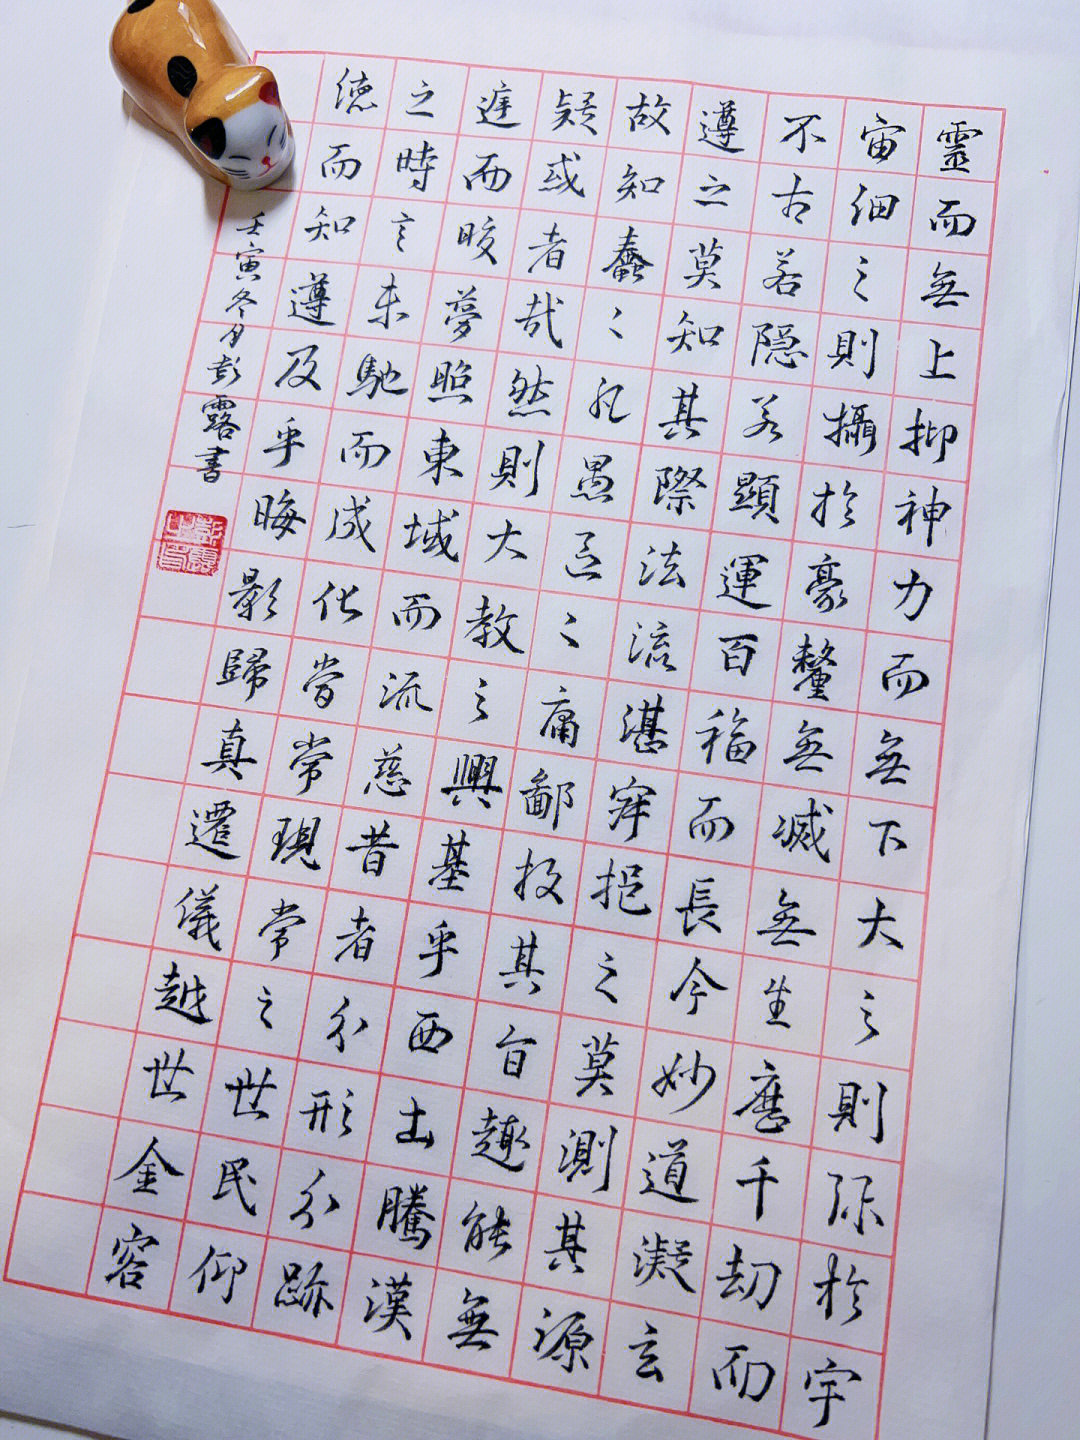 靈而無上抑神力而無下大之則弥於宇
宙細之則攝於豪釐無滅無生歷千劫而
不古若隠若顯運百福而長今妙道凝玄
遵之莫知其際法流湛寂挹之莫測其源
故知蠢々凡愚區々庸鄙投其旨趣能無
疑或者哉然則大教之興基乎西土騰漢
庭而皎夢照東域而流慈昔者分形分跡
之時言未馳而成化當常現常之世民仰
德而知遵及乎晦影歸真遷儀越世金容
壬寅冬月彭露書
彭露之印